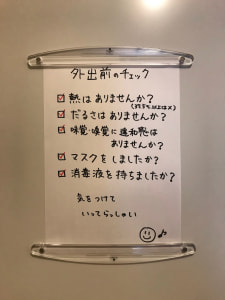 外出前のチェック
☑ 熱はありませんか?
☑ だるさはありませんか?
☑ 味覚・嗅覚に違和感は
ありませんか?
☑ マスクをしましたか?
☑ 消毒液を持ちましたか?
気をつけて
いってらっしゃい